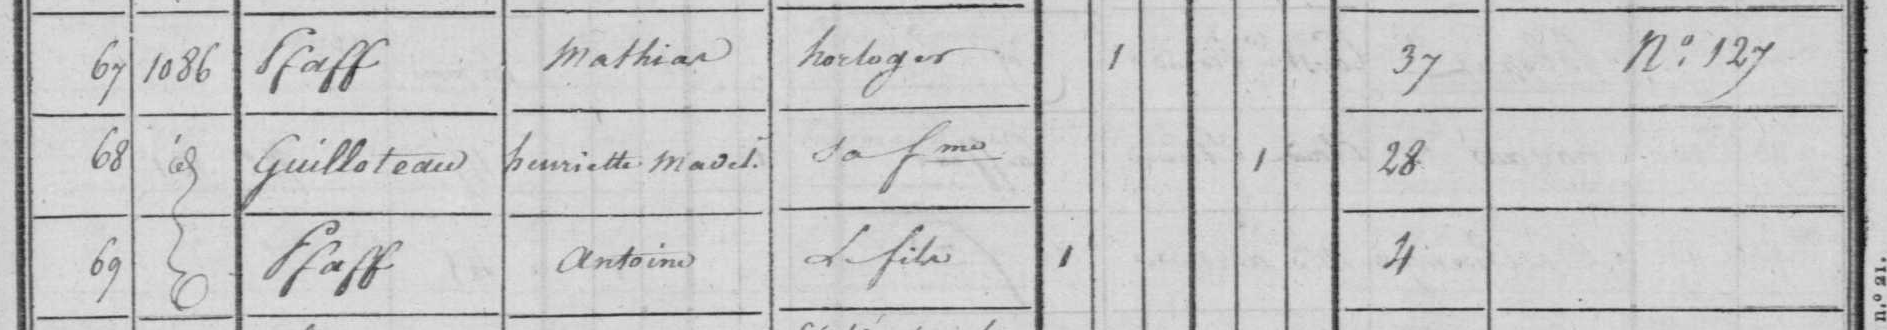 67 1086 Pfaff Mathias horloger 1 37 N.º 127
68 id Guilloteau henriette Madel. Sa fme 1 28
69 Pfaff Antoine Le fils 1 4
n.º 21.